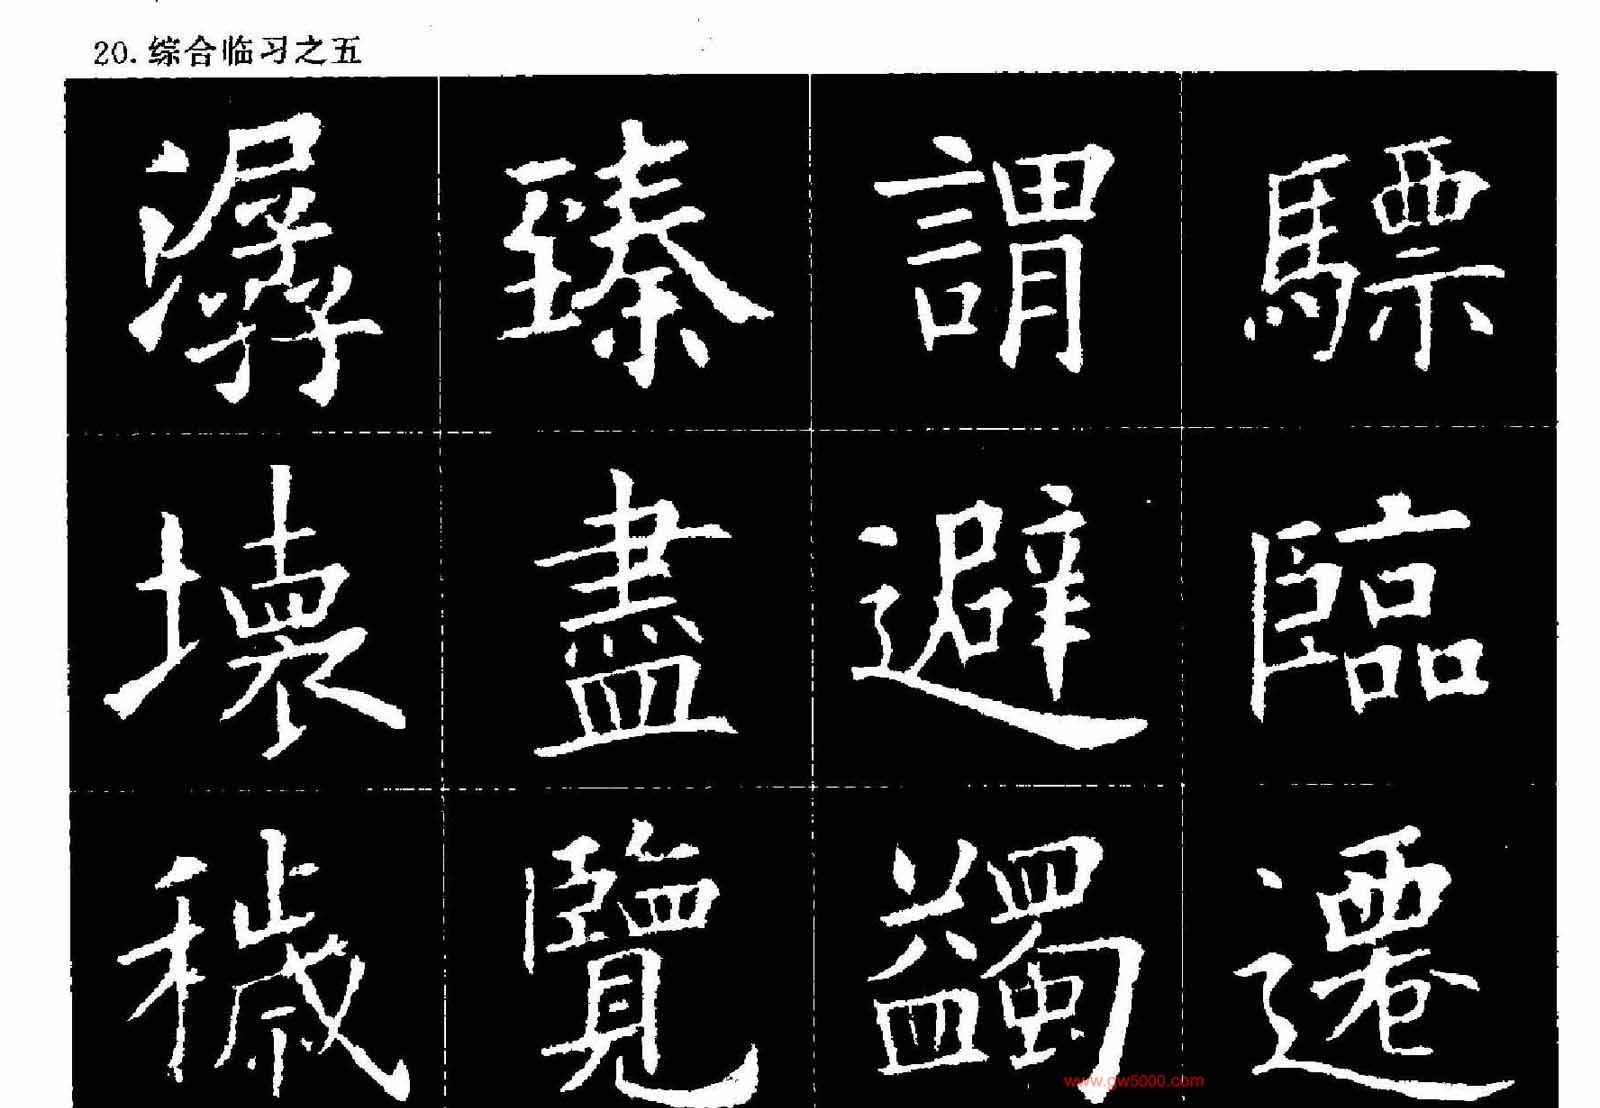 20.综合临习之五
潺臻謂驃
壞盡避臨
穢覽蠲遷
www.gw5000.com